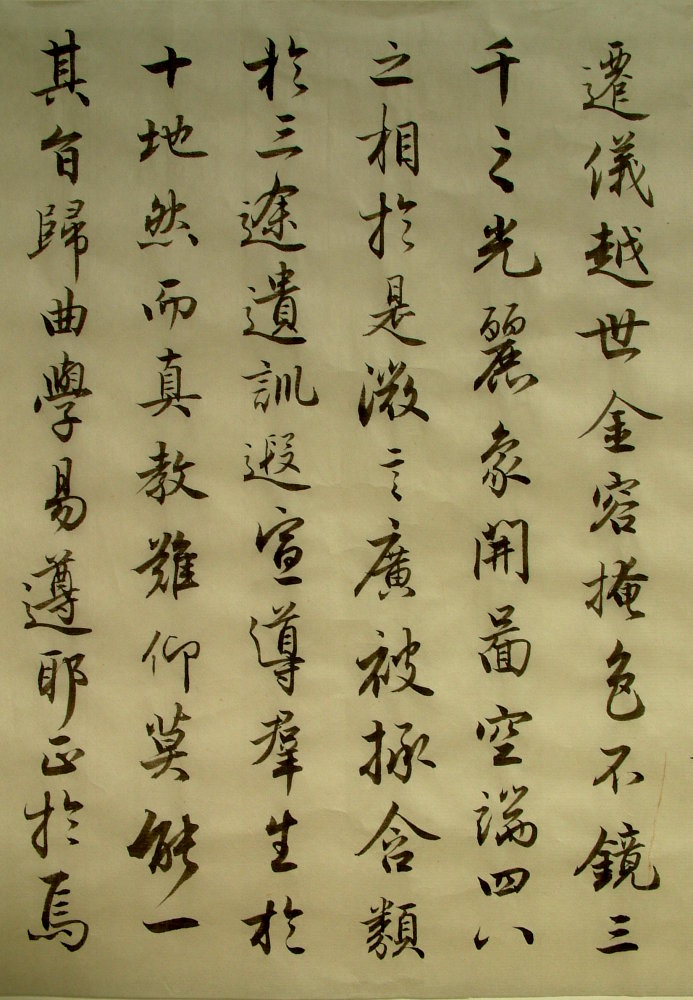 遷儀越世金容掩色不鏡三
千之光麗象開圖空端四八
之相於是微言廣被拯含類
於三途遺訓遐宣導羣生於
十地然而真教難仰莫能一
其旨歸曲學易遵耶正於焉